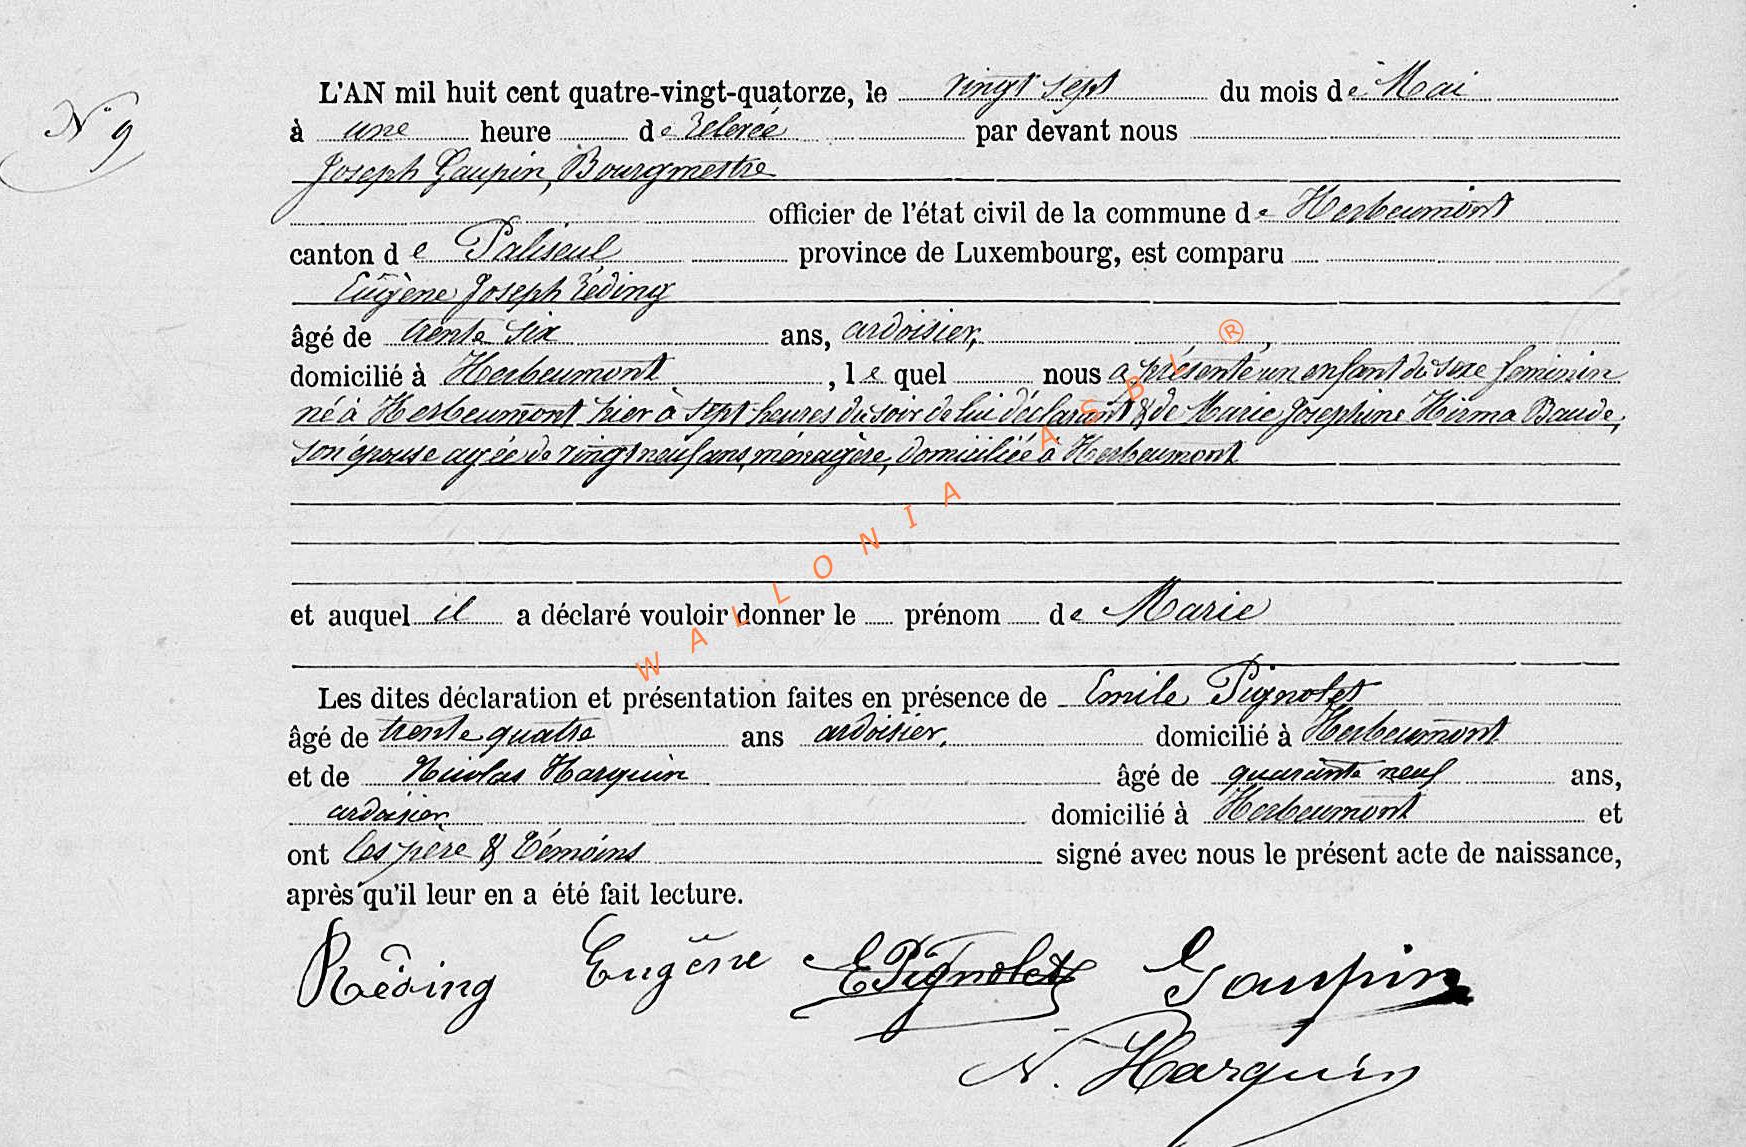 N° 9
L'AN mil huit cent quatre-vingt-quatorze, le vingt sept du mois de Mai
à une heure de relevée par devant nous
Joseph Gaupin, Bourgmestre
officier de l'état civil de la commune de Herbeumont
canton de Paliseul province de Luxembourg, est comparu
Eugène Joseph Réding
âgé de trente six ans, ardoisier,
domicilié à Herbeumont, le quel nous a présenté un enfant du sexe feminin
né à Herbeumont hier à sept heures du soir de lui déclarant & de Marie Josephine Hirma Baude,
son épouse agée de vingt neuf ans, ménagère, domiciliée à Herbeumont
et auquel il a déclaré vouloir donner le prénom de Marie
Les dites déclaration et présentation faites en présence de Emile Pignolet
âgé de trente quatre ans ardoisier, domicilié à Herbeumont
et de Nicolas Harquin âgé de quarante neuf ans,
ardoisier domicilié à Herbeumont et
ont les père & témoins signé avec nous le présent acte de naissance,
après qu'il leur en a été fait lecture.
Réding Eugène EPignolet Gaupin
N. Harquin
WALLONIA ASBL ®